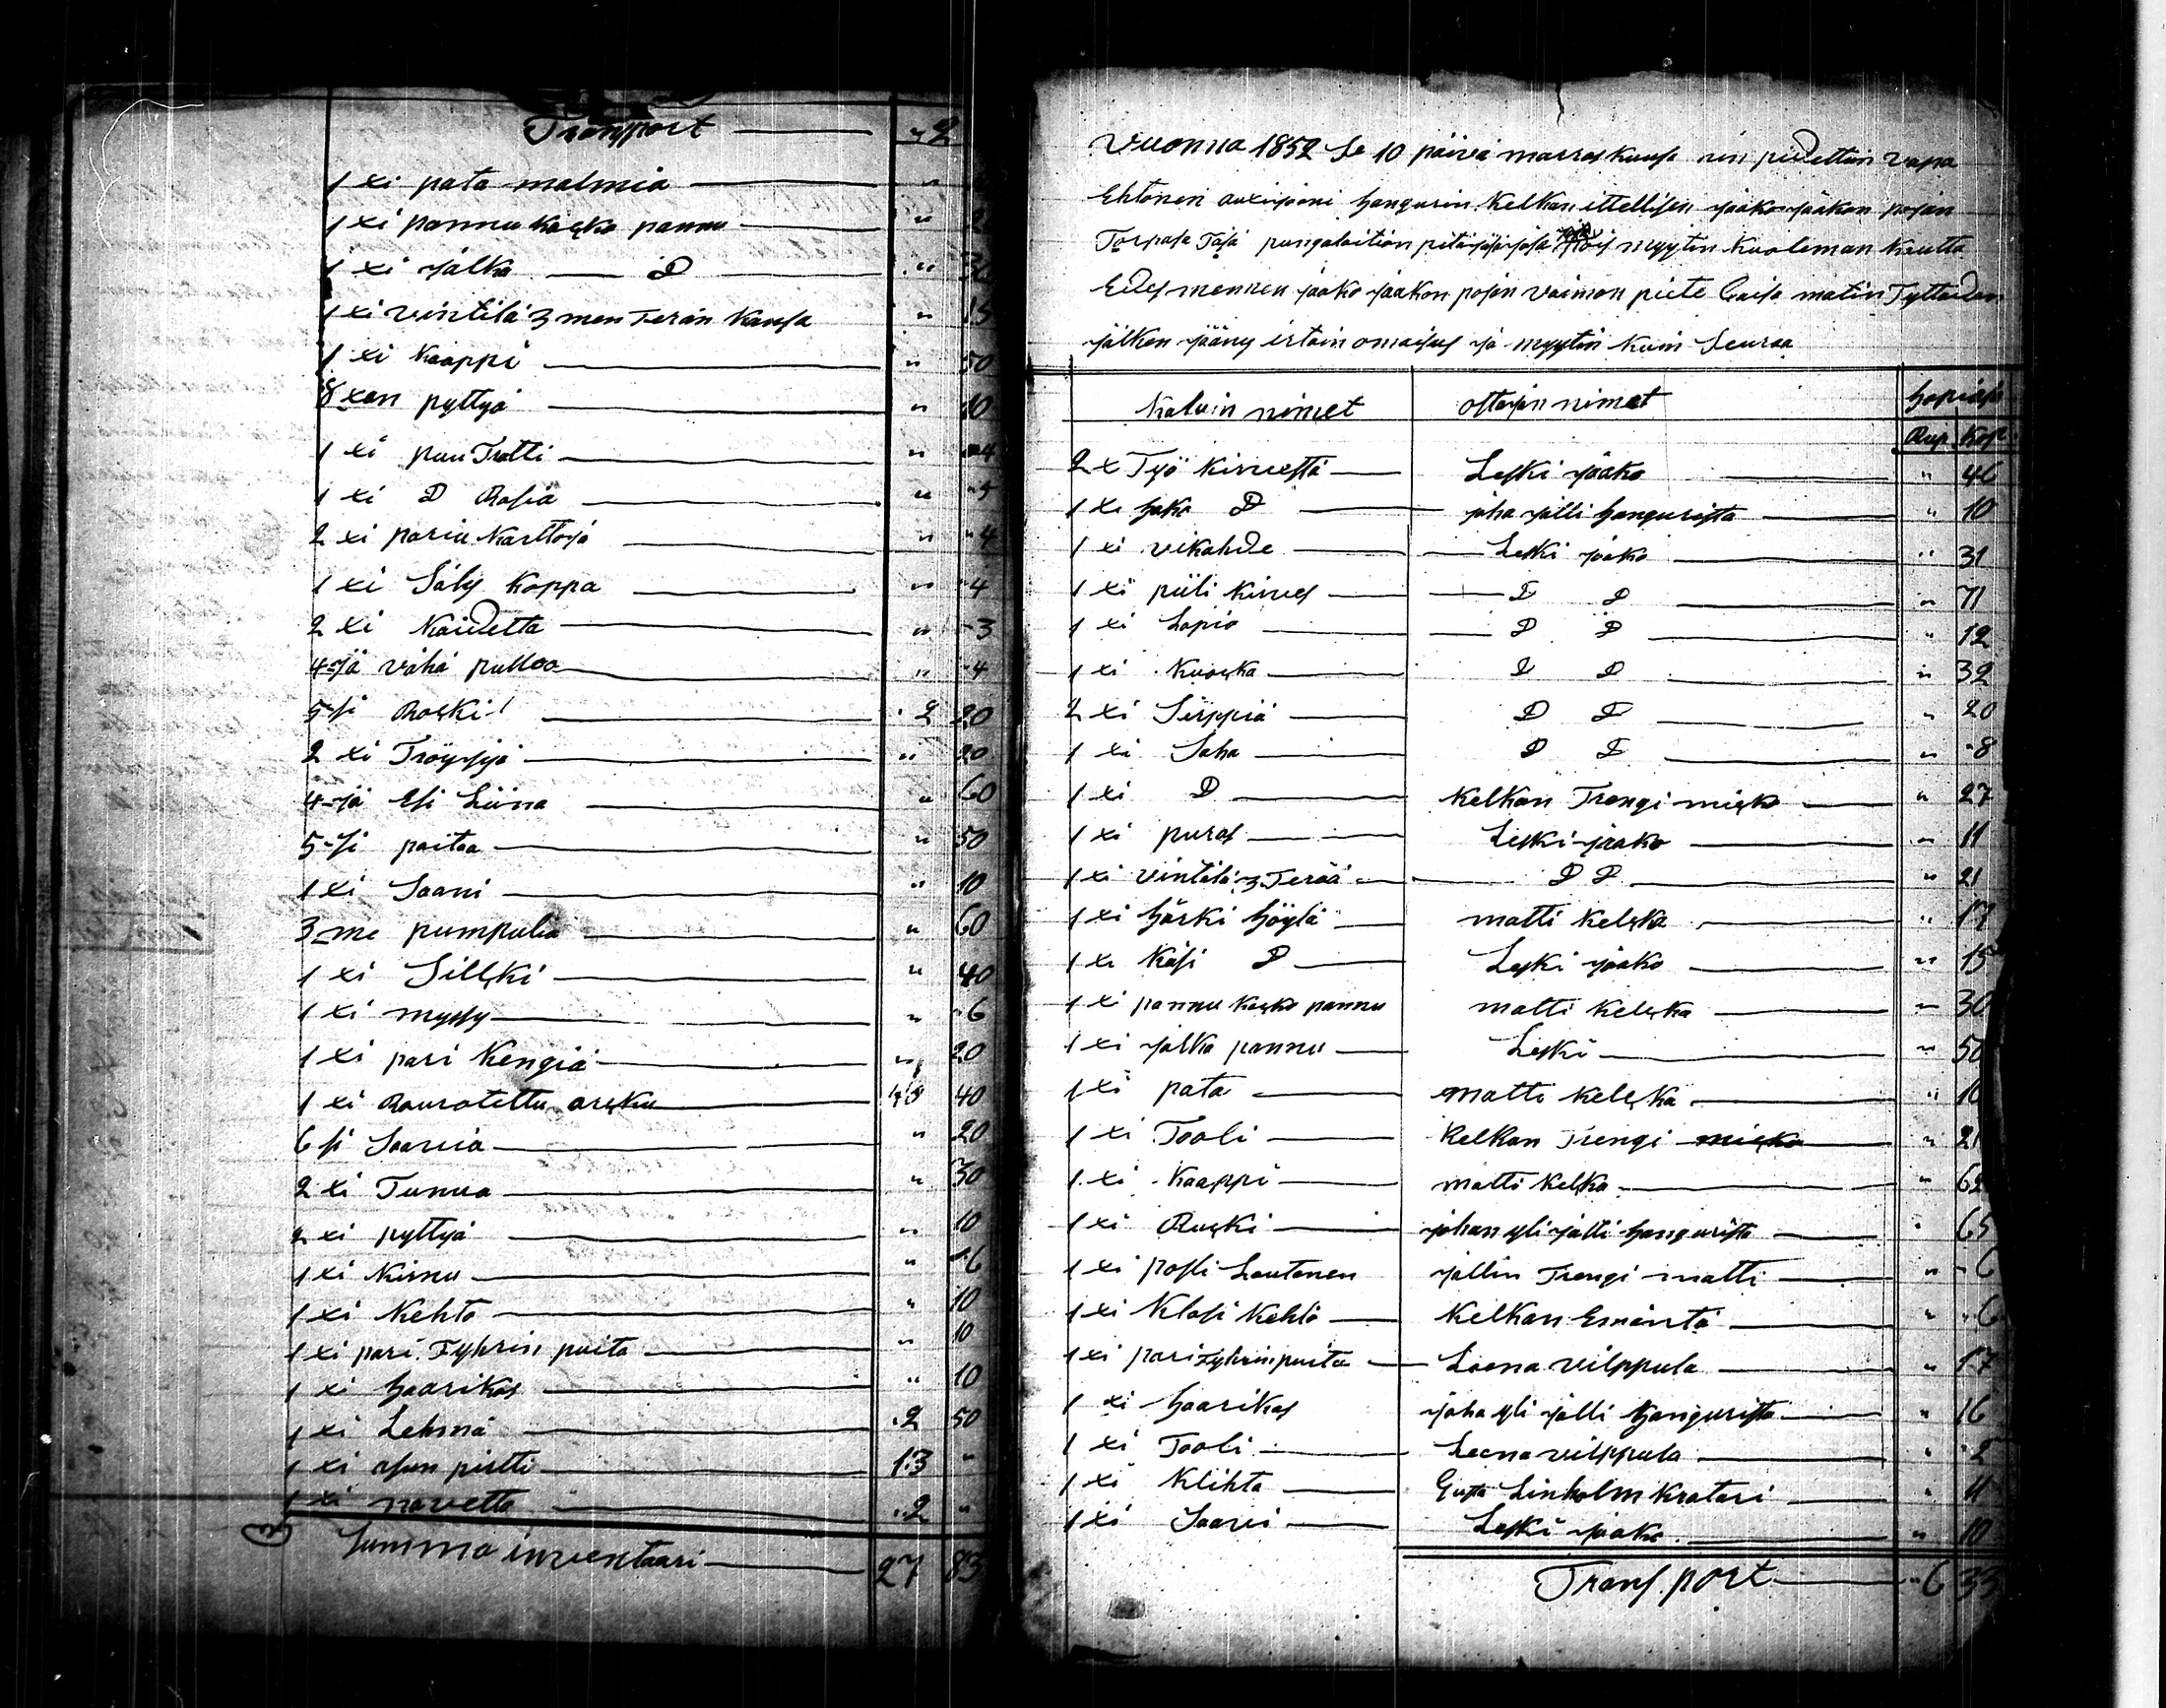 Transport — " 2
1 xi pata malmia — "
1 xi pannu kaska pannu — " 2
1 xi jalka — D — " 30
1 xi vintilä 3 men Terän Kansa " 15
1 xi Kaappi — " 50
8 xan pyttyä — " 10
1 xi puu Tratti — " 4
1 xi D Rasia — " 5
2 xi pariu Karttoja — " 4
1 xi Säly Koppa — " 4
2 xi Kaidetta — " 3
4-jä vähä pulloa — " 4
5-si Raski — 2 20
2 xi Tröyjyä — " 20
4-jä Esi Liina — " 60
5-si paitaa — " 50
1 xi Saani — " 10
3-me pumpulia — " 60
1 xi Sillki — " 40
1 xi myssy — " 6
1 xi pari Kengiä — " 20
1 xi Raurotettu arcku — 40
6 si Saavia — " 20
2 xi Tunua — " 30
2 xi pyttyä — " 10
1 xi Kirnu — " 6
1 xi Kehto — " 10
1 xi pari Fyhrin puita — " 10
1 xi haarikas — " 10
1 xi Lehmä — 2 50
1 xi pirtti — 13 "
1 xi navetta — 2 "
Summa inventaari — 27 83
Vuonna 1852 Se 10 päivä marraskuusa nin pidettiin vapa
Ehtonen auxijoni hangurin Kelkan ittellisen jaako jaakon pojan
Torpasa Täsä pungalaition pitäjäsä josa myytin Kuoleman Kautta
Edesmennen jaako jaakon pojan vaimon piete Caisa matin Tyttären
jälken jääny irtain omaisus ja myytin Kuin Seuraa
Kaluin nimet ostajan nimet hopiasa
Rup Kop
2 x Työ kirvestä — Leski jaako — " 46
1 xi hako D — juha jälli hangurista — " 10
1 xi vikahde — Leski jaako — " 31
1 xi piili kirves — D D — " 71
1 xi Lapio — D D — " 12
1 xi Kuocka — D D — " 32
2 xi Sirppiä — D D — " 20
1 xi Saha — D D — " 8
1 xi D — Kelkan Trengi micko — " 27
1 xi puras — Leski jaako — " 11
1 xi vintilä 3 Terää — D D — " 21
1 xi härki höylä — matti kelcka — " 17
1 xi Käsi D — Leski jaako — " 15
1 xi pannu kacko pannu matti kelcka — " 30
1 xi jalka pannu — Leski — " 50
1 xi pata — matti kelcka — " 10
1 xi Tooli — Kelkan Trengi micko — " 21
1 xi Kaappi — matti kelka — " 62
1 xi Rucki — johan yli jälli hangurista — " 65
1 xi posli Lautanen jällin Trengi matti — " 6
1 xi Klasi Kehlä — Kelkan Emäntä — " 6
1 xi pari fyhrinpuita — Leena vilppula — " 17
1 xi haarikas juha yli jälli hangurista — " 16
1 xi Tooli — Leena vilppula — " 5
1 xi Klihta — Gusta Linholm Kratari — " 11
1 xi Saavi — Leski jaako — " 10
Transport — 6 33